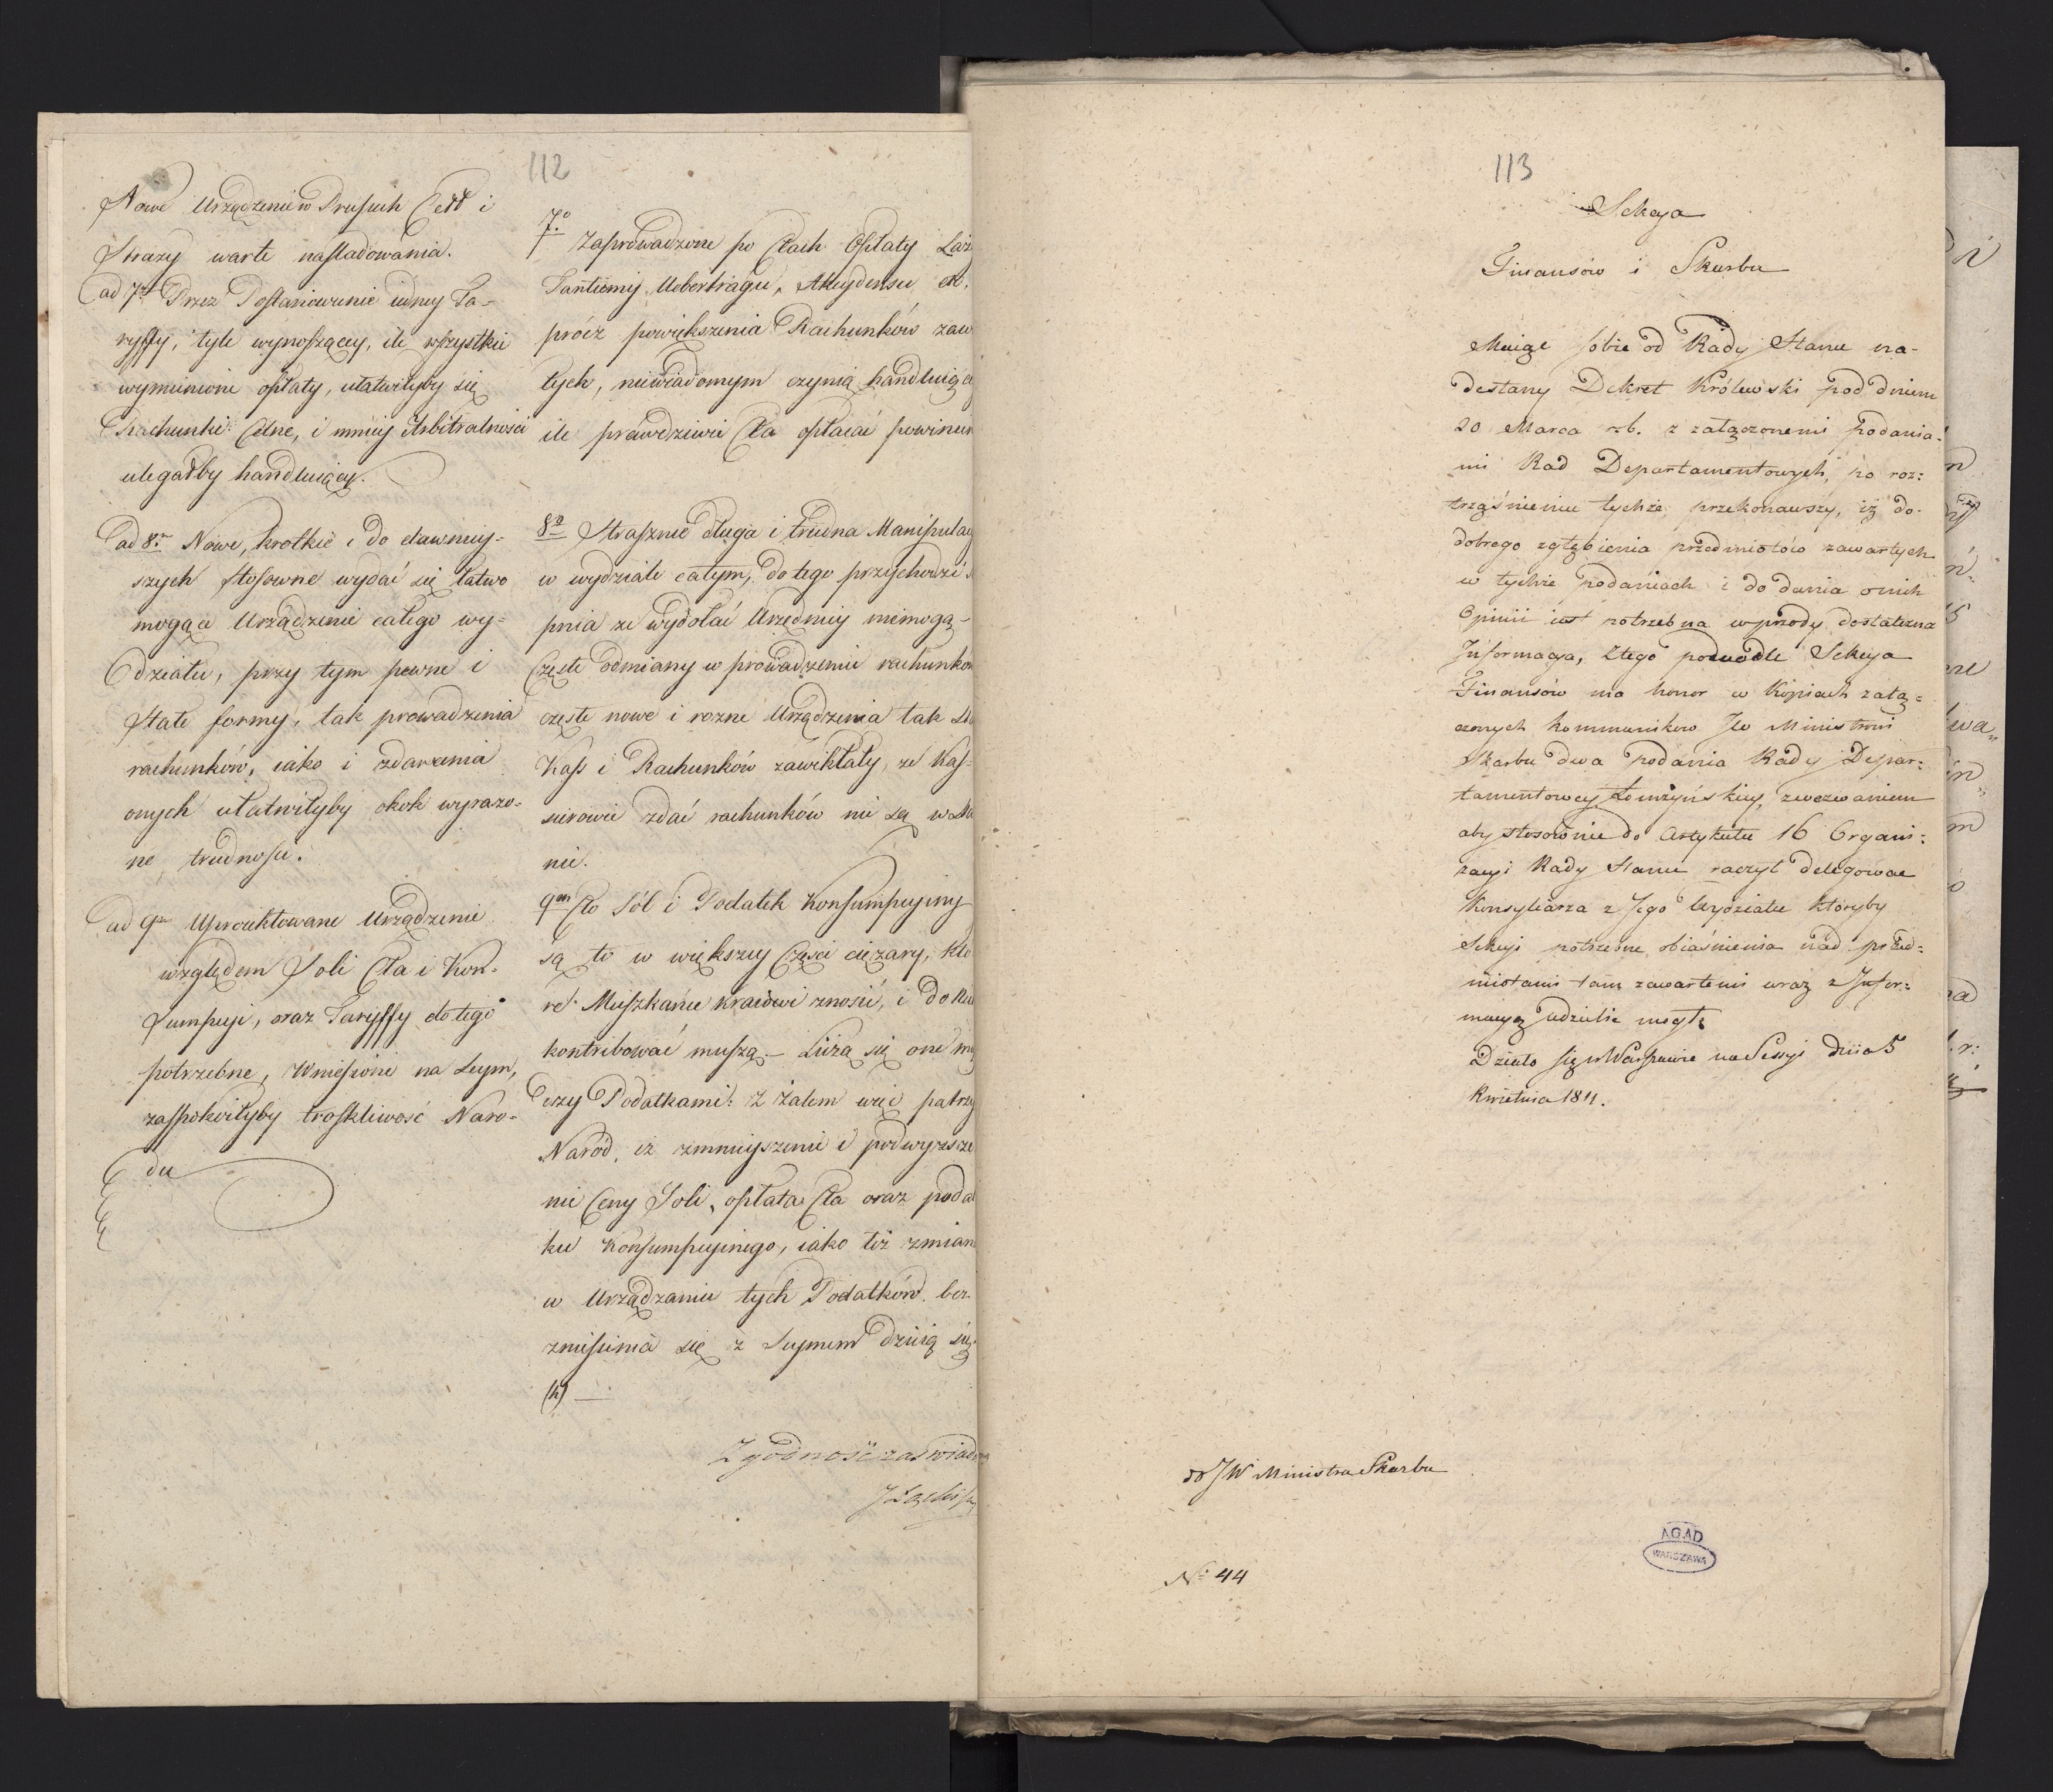 112
Nowe Urządzenie w Prusiech Cełł i
Straży warte nasladowania.
ad 7m Przez Postanowienie iedney Ta-
ryffy, tyle wynoszącey, ile wszystkie
wymienione opłaty, ułatwiłyby się
Rachunki Celne, i mniey Arbitralności
ulegałby handluiący.
ad 8m Nowe, krotkie i do dawniey-
szych stosowne wydać się łatwo
mogące Urządzenie całego wy-
działu, przy tym pewne i
Stałe formy, tak prowadzenia
rachunków, iako i zdawania
onych ułatwiłyby okok wyrażo-
ne trudności.
ad 9m Uproiektowane Urządzenie
względem Soli Cła i Kon-
sumpcyi, oraz Taryffy do tego
potrzebne, Wniesione na Seym,
zaspokoiłyby troskliwość Naro-
du
7o Zaprowadzone po Cłach Opłaty
Tantiemy Uebertragu, Akcydensu et.
prócz powiększenia Rachunków zaw
tych, niewiadomym czynią handluiąc
ile prawdziwie Cła opłacać powinien
8o Strasznie długa i trudna Manipulac
w wydziale całym, do tego przychodzi s
pnia ze wydołać Urzędnicy niemogą-
Częste odmiany w prowadzeniu rachunków
częste nowe i rozne Urządzenia tak
Kass i Rachunków zawikłały, ze Kas-
sierowie zdać rachunków nie są w
nie.
9m Cło Sól i Podatek Konsumpcyiny
są to w większey Części ciężary, któ
re Mieszkańce kraiowi znosić, i do
kontribować muszą.- Liżą się one
dzy Podatkami: Z żalem więc patrzy
Naród, iż zmnieyszenie i podwyższe
nie Ceny Soli, opłata Cła oraz poda
ku Konsumpcyinego, iako też zmian
w Urządzaniu tych Podatków bez
zniesienia się z Seymem dzieią się
(h) —
Zgodność zaświad
113
Sekcya
Finansów i Skarbu
Maiąc sobie od Rady Stanu na-
desłany Dekret Królewski pod dniem
20 Marca r.b. z załączonemi Podania-
mi Rad Departamentowych, po roz:
trząśnieniu tychże, przekonawszy, iż do-
dobrego zgłębienia przedmiotów zawartych
w tychże podaniach i do dania onich
Opinii iest potrzebna wprzody dostateczna
Informacya, Ztego powodu Sekcya
Finansów ma honor w Kopiach załą-
czonych kommunikow JW Ministrowi
Skarbu dwa Podania Rady Depar:
tamentowey Łomżyńskiey, zwezwaniem
aby stosownie do Artykułu 16 Organi:
zacyi Rady Stanu raczył delegować
Konsyliarza z Jego Wydziału któryby
Sekcyi potrzebne obiaśnienia nad przed-
miotami tam zawartemi wraz z Infor:
macyą udzielić mogł
Działo się w Warszawie na Sessyi dnia 5
Kwietnia 1811.
do JW Ministra Skarbu
No 44
AGAD
WARSZAWA